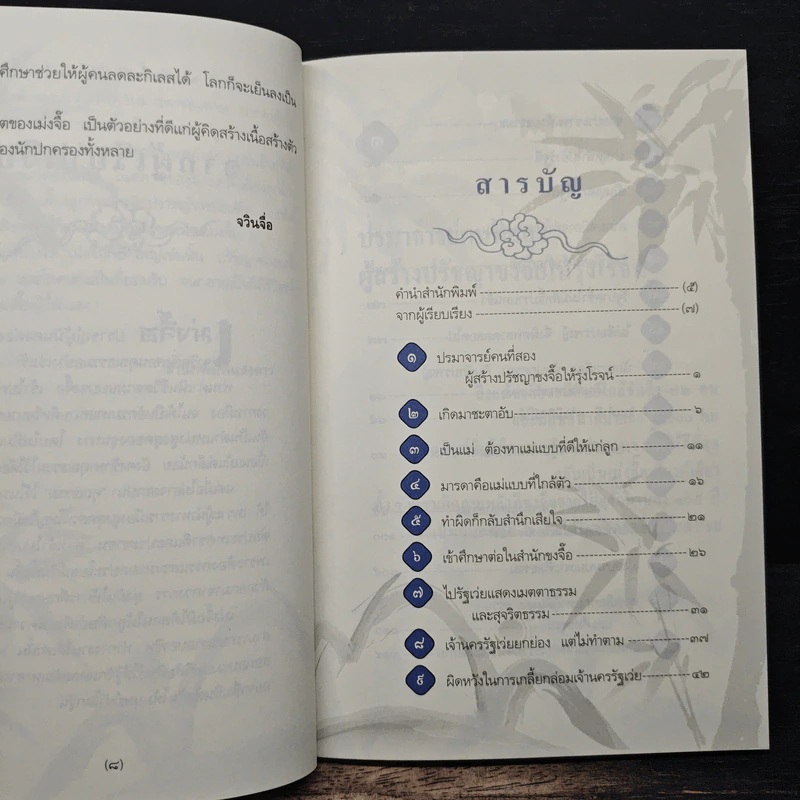 ศึกษาช่วยให้ผู้คนลดละกิเลสได้ โลกก็จะเย็นลงเป็น
ตของเม่งจื๊อ เป็นตัวอย่างที่ดีแก่ผู้คิดสร้างเนื้อสร้างตัว
องนักปกครองทั้งหลาย
จวินจื่อ
(๘)
สารบัญ
คำนำสำนักพิมพ์ (๕)
จากผู้เรียบเรียง (๗)
๑ ปรมาจารย์คนที่สอง
ผู้สร้างปรัชญาขงจื๊อให้รุ่งโรจน์ ๑
๒ เกิดมาชะตาอับ ๖
๓ เป็นแม่ ต้องหาแม่แบบที่ดีให้แก่ลูก ๑๑
๔ มารดาคือแม่แบบที่ใกล้ตัว ๑๖
๕ ทำผิดก็กลับสำนึกเสียใจ ๒๑
๖ เข้าศึกษาต่อในสำนักขงจื๊อ ๒๖
๗ ไปรัฐเว่ยแสดงเมตตาธรรม
และสุจริตธรรม ๓๑
๘ เจ้านครรัฐเว่ยยกย่อง แต่ไม่ทำตาม ๓๗
๙ ผิดหวังในการเกลี้ยกล่อมเจ้านครรัฐเว่ย ๔๒